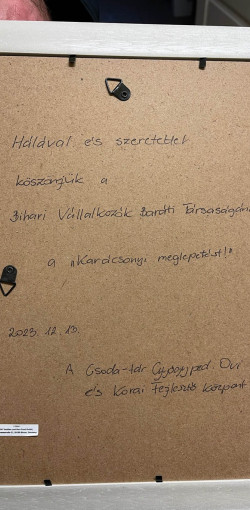 Hálával és szeretettel
köszönjük a
Bihari Vállalkozók Baráti Társaságának
a "Karácsonyi meglepetést!"
2023. 12. 13.
A Csoda-tár Gyógyped. Óvi
és Korai Fejlesztő Központ